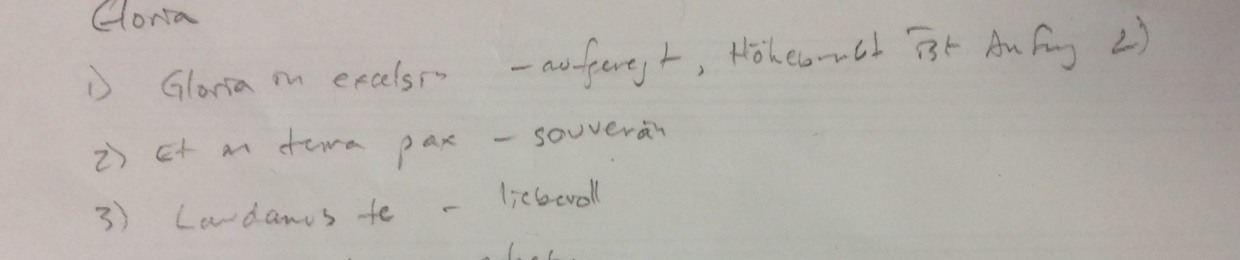 Gloria
1) Gloria in excelsis - aufgeregt, Höhepunkt ist Anfang 2)
2) Et in terra pax - souverän
3) Laudamus te - liebevoll